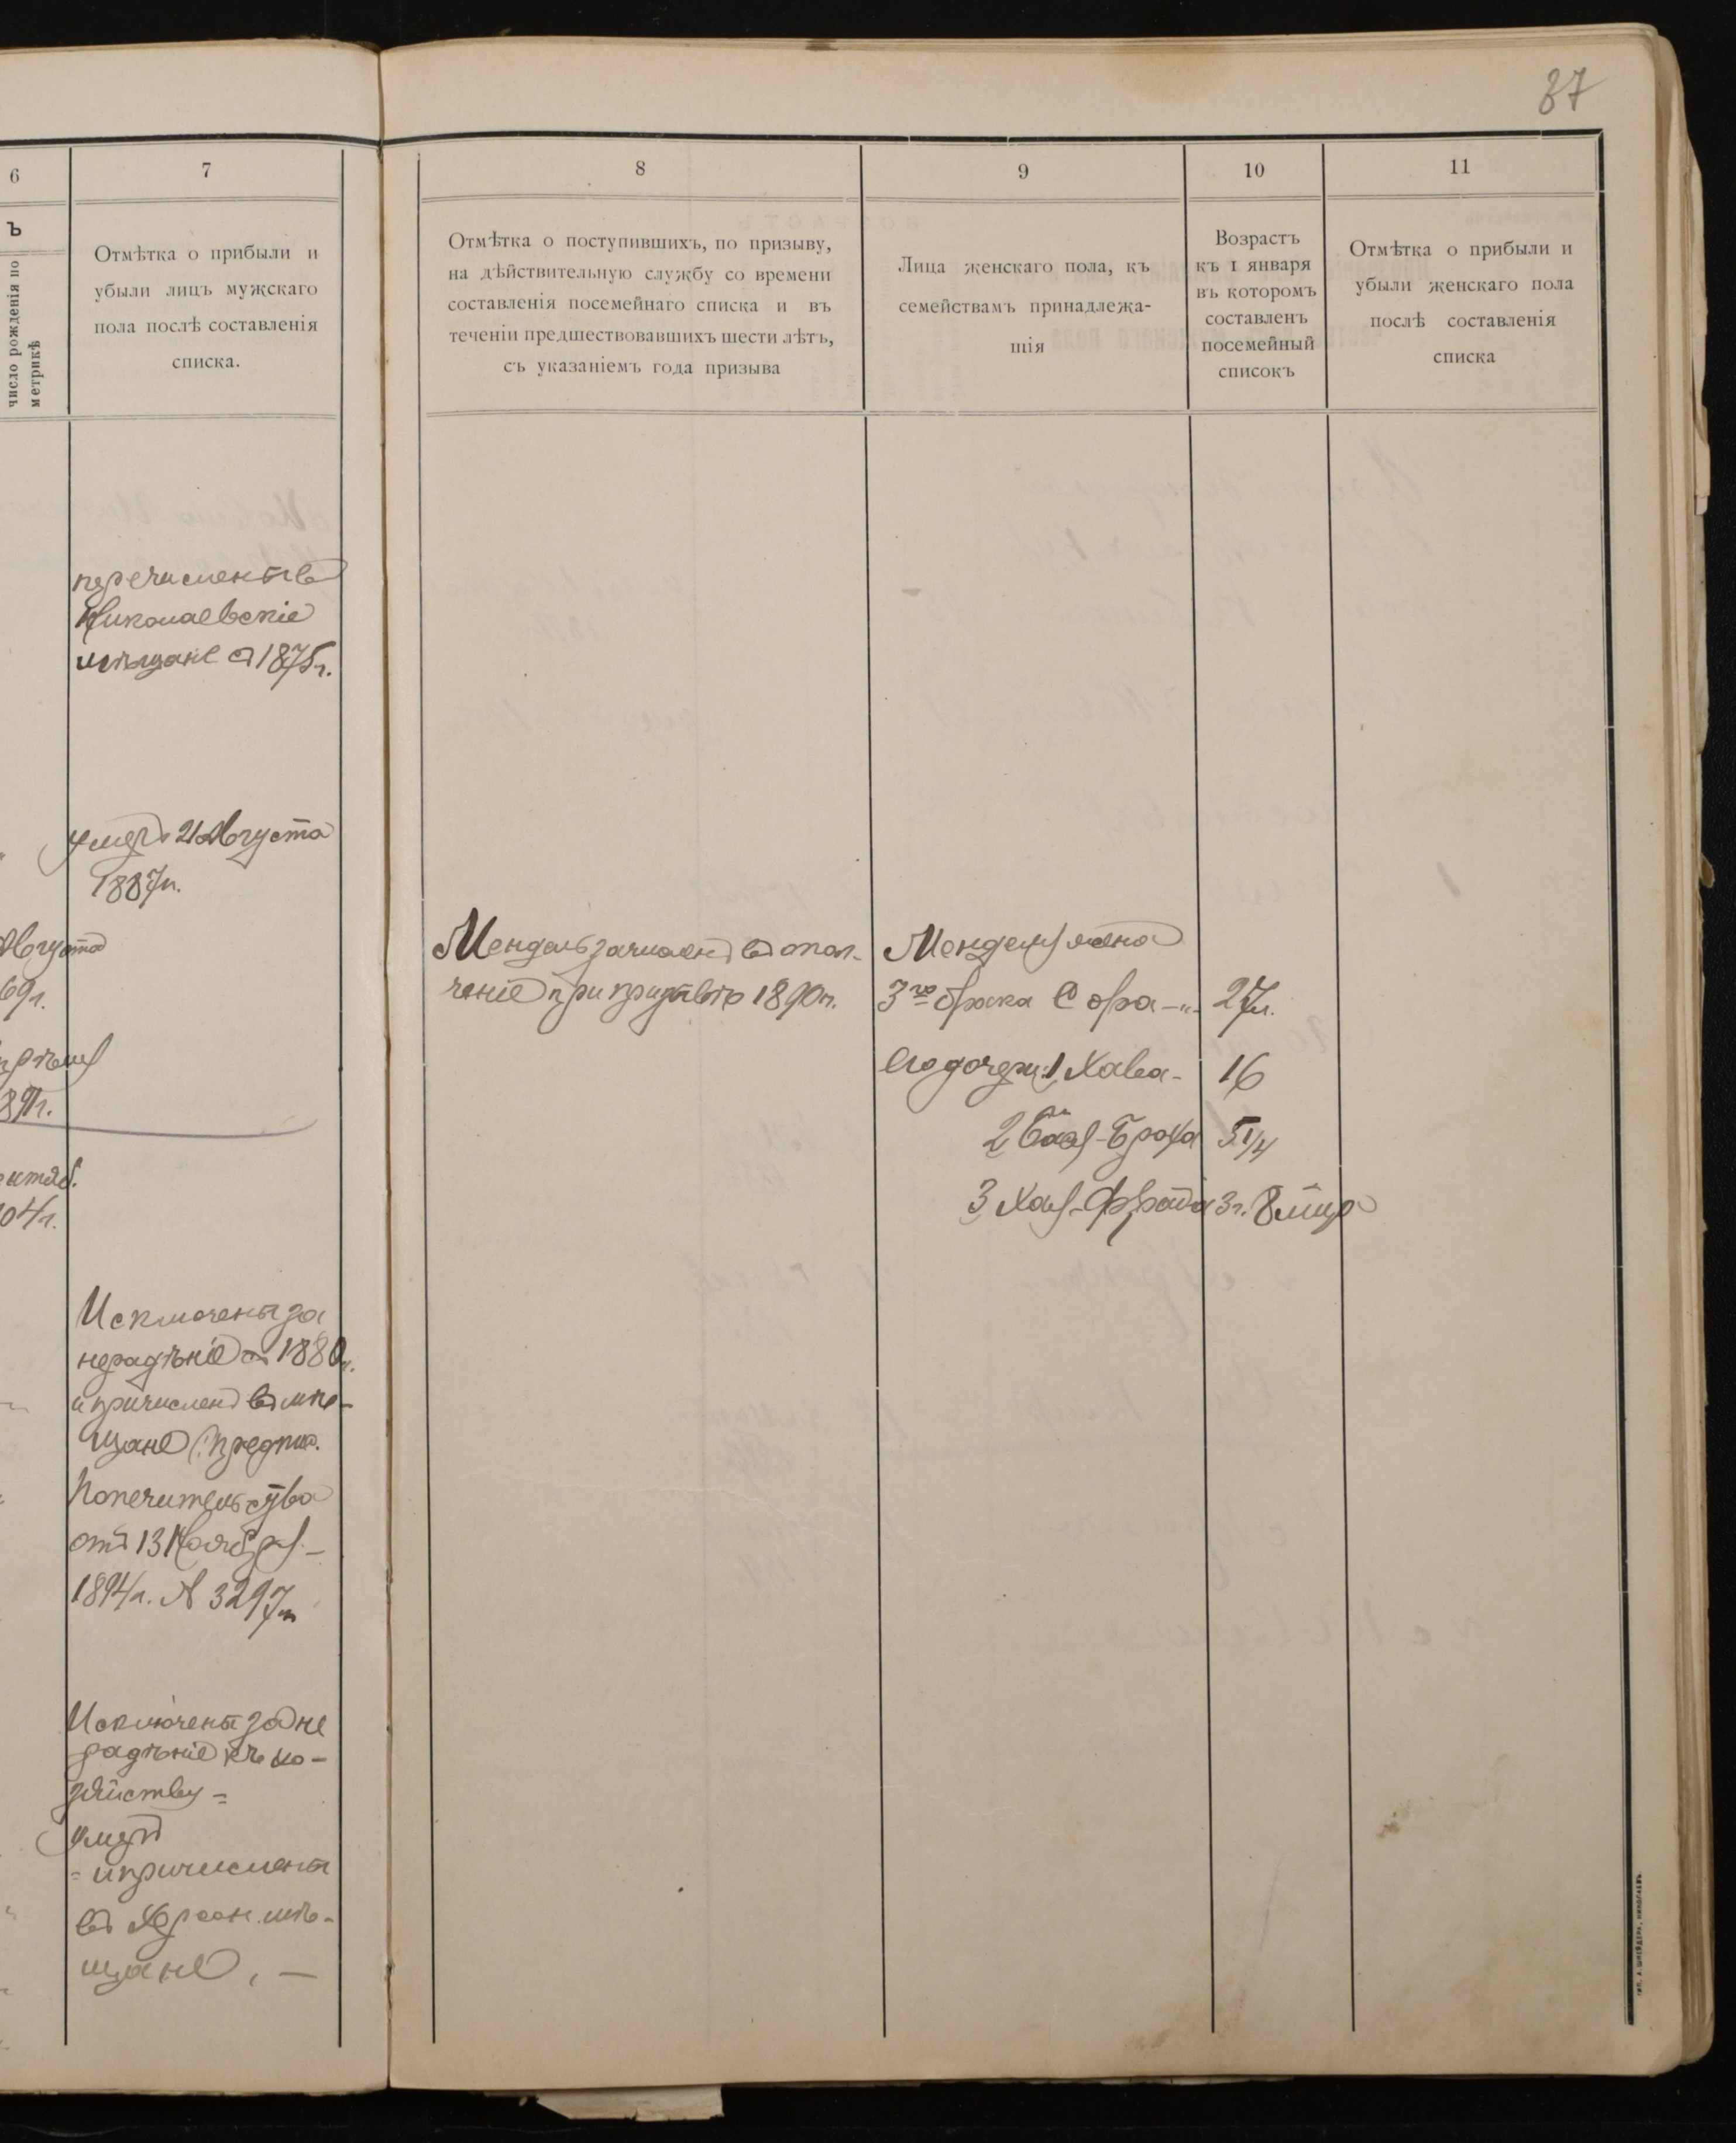 37
6
7
8
9
10
11
Ъ
число рожденія по
метрикѣ
Отмѣтка о прибыли и
убыли лицъ мужскаго
пола послѣ составленія
списка.
Отмѣтка о поступившихъ, по призыву,
на дѣйствительную службу со времени
составленія посемейнаго списка и въ
теченіи предшествовавшихъ шести лѣтъ,
съ указаніемъ года призыва
Лица женскаго пола, къ
семействамъ принадлежа-
щія
Возрастъ
къ 1 января
въ которомъ
составленъ
посемейный
списокъ
Отмѣтка о прибыли и
убыли женскаго пола
послѣ составленія
списка
перечисленъ въ
Николаевскіе
мѣщане съ 1875 г.
умеръ 21 Августа
1887 г.
Августа
69 г.
891 г.
04 г.
Мендель зачисленъ въ опол-
ченіе при призывѣ 1890 г.
Менделя жена
3го брака Сора -"- 27 л.
Его дочери: 1 Хава - 16
2 Брока 5 1/4
3 Хая-Фрейда 3 г. 8 мца
Исключенъ за
нерадѣніе съ 1880 г.
и причисленъ въ мѣ-
щане (: предпис.
Попечительства
отъ 13 Ноября -
1894 г. № 3297
Исключенъ за не
радѣніе къ хо-
зяйству =
умеръ
= и причисленъ
въ Херсон. мѣ-
щане. —
ТИП. А. ШНЕЙДЕРА, НИКОЛАЕВЪ.